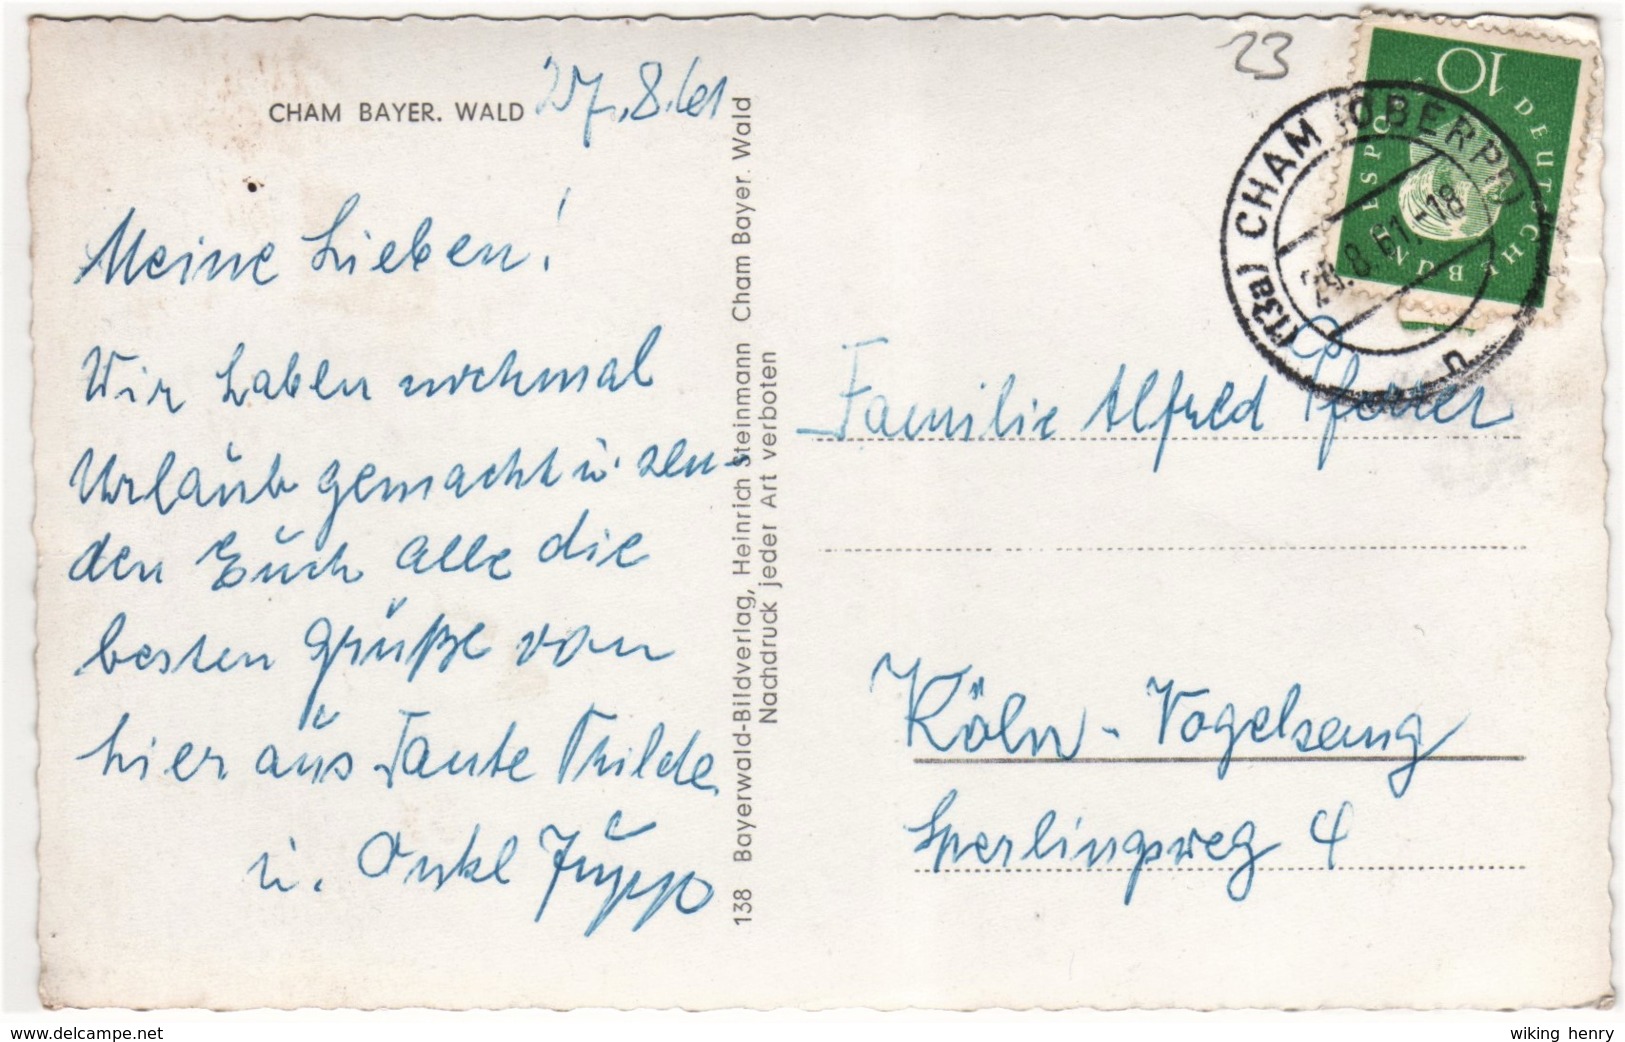 CHAM BAYER. WALD 27.8.61
Meine Lieben!
Wir haben nochmal
Urlaub gemacht u. sen-
den Euch alle die
besten Grüße von
hier aus Tante Thilde
u. Onkel Jupp
138 Bayerwald-Bildverlag, Heinrich Steinmann Cham Bayer. Wald
Nachdruck jeder Art verboten
23
10
DEUTSCHE BUNDESPOST
(13a) CHAM (OBERPF)
29.8.61.-18
n
Familie Alfred
Köln-Vogelsang
Sperlingsweg 4
delcampe.net
wiking henry